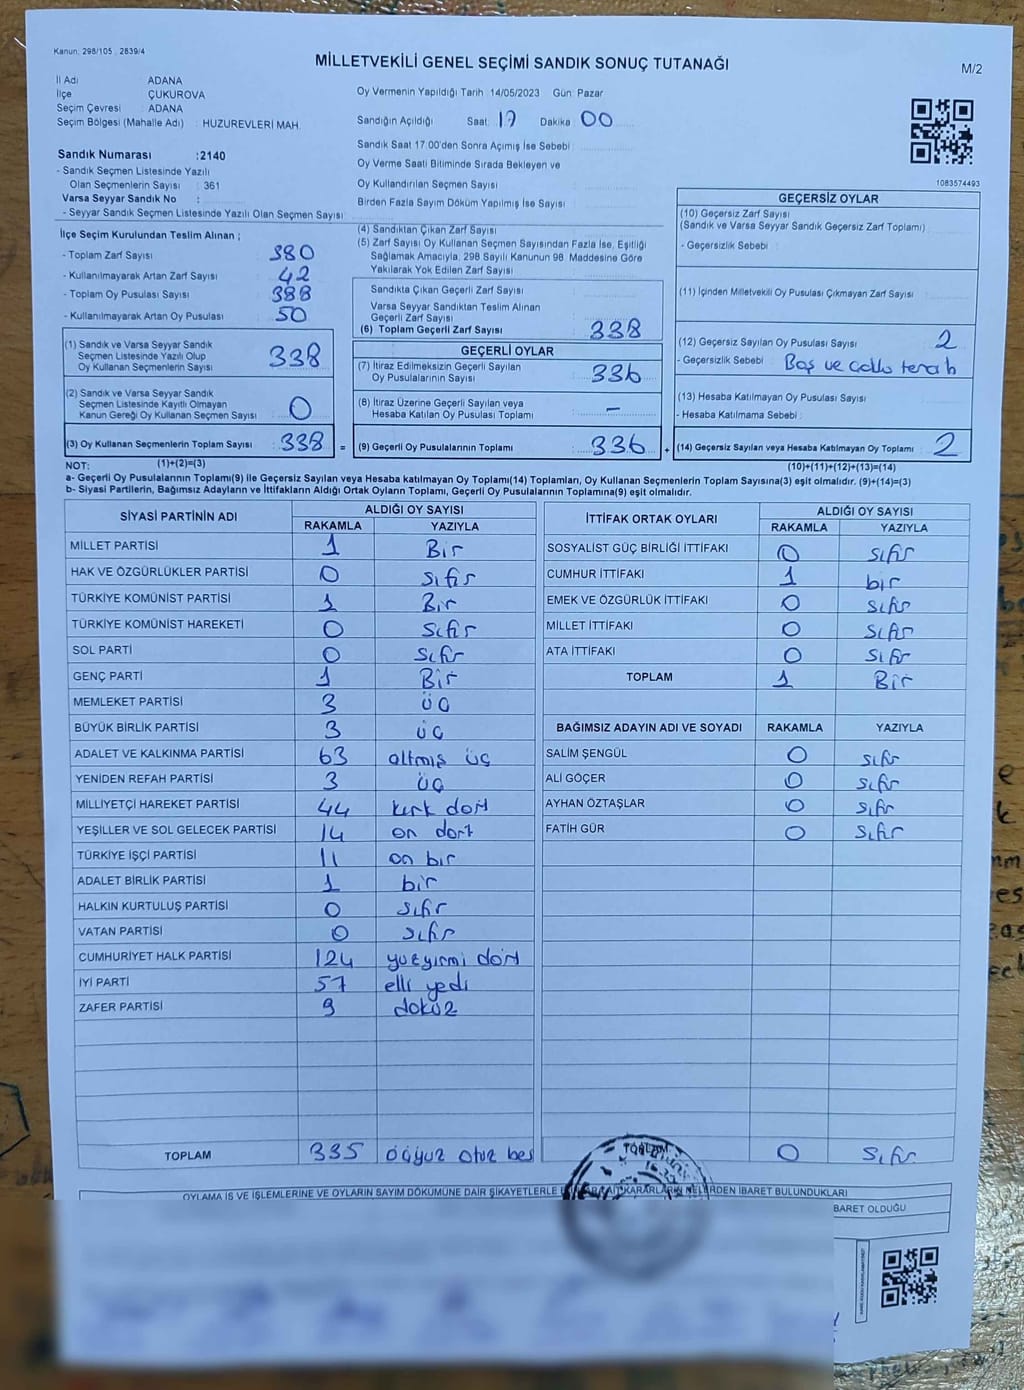 Kanun: 298/105 , 2839/4
MİLLETVEKİLİ GENEL SEÇİMİ SANDIK SONUÇ TUTANAĞI
M/2
İl Adı : ADANA
İlçe : ÇUKUROVA
Seçim Çevresi : ADANA
Seçim Bölgesi (Mahalle Adı) : HUZUREVLERİ MAH.
Sandık Numarası :2140
- Sandık Seçmen Listesinde Yazılı
Olan Seçmenlerin Sayısı : 361
Varsa Seyyar Sandık No :
- Seyyar Sandık Seçmen Listesinde Yazılı Olan Seçmen Sayısı :
Oy Vermenin Yapıldığı Tarih : 14/05/2023 Gün: Pazar
Sandığın Açıldığı Saat: 17 Dakika: 00
Sandık Saat 17.00'den Sonra Açımış İse Sebebi :
Oy Verme Saati Bitiminde Sırada Bekleyen ve
Oy Kullandırılan Seçmen Sayısı :
Birden Fazla Sayım Döküm Yapılmış İse Sayısı :
1083574493
İlçe Seçim Kurulundan Teslim Alınan ;
- Toplam Zarf Sayısı : 380
- Kullanılmayarak Artan Zarf Sayısı : 42
- Toplam Oy Pusulası Sayısı : 388
- Kullanılmayarak Artan Oy Pusulası : 50
(1) Sandık ve Varsa Seyyar Sandık
Seçmen Listesinde Yazılı Olup
Oy Kullanan Seçmenlerin Sayısı : 338
(2) Sandık ve Varsa Seyyar Sandık
Seçmen Listesinde Kayıtlı Olmayan
Kanun Gereği Oy Kullanan Seçmen Sayısı : 0
(3) Oy Kullanan Seçmenlerin Toplam Sayısı : 338
(1)+(2)=(3)
(4) Sandıktan Çıkan Zarf Sayısı :
(5) Zarf Sayısı Oy Kullanan Seçmen Sayısından Fazla İse, Eşitliği
Sağlamak Amacıyla, 298 Sayılı Kanunun 98. Maddesine Göre
Yakılarak Yok Edilen Zarf Sayısı :
Sandıkta Çıkan Geçerli Zarf Sayısı :
Varsa Seyyar Sandıktan Teslim Alınan
Geçerli Zarf Sayısı :
(6) Toplam Geçerli Zarf Sayısı : 338
GEÇERLİ OYLAR
(7) İtiraz Edilmeksizin Geçerli Sayılan
Oy Pusulalarının Sayısı : 336
(8) İtiraz Üzerine Geçerli Sayılan veya
Hesaba Katılan Oy Pusulası Toplamı : –
= (9) Geçerli Oy Pusulalarının Toplamı : 336
GEÇERSİZ OYLAR
(10) Geçersiz Zarf Sayısı
(Sandık ve Varsa Seyyar Sandık Geçersiz Zarf Toplamı) :
- Geçersizlik Sebebi :
(11) İçinden Milletvekili Oy Pusulası Çıkmayan Zarf Sayısı :
(12) Geçersiz Sayılan Oy Pusulası Sayısı : 2
- Geçersizlik Sebebi : Boş ve
(13) Hesaba Katılmayan Oy Pusulası Sayısı :
- Hesaba Katılmama Sebebi :
+ (14) Geçersiz Sayılan veya Hesaba Katılmayan Oy Toplamı : 2
(10)+(11)+(12)+(13)=(14)
NOT:
a- Geçerli Oy Pusulalarının Toplamı(9) ile Geçersiz Sayılan veya Hesaba katılmayan Oy Toplamı(14) Toplamları, Oy Kullanan Seçmenlerin Toplam Sayısına(3) eşit olmalıdır. (9)+(14)=(3)
b- Siyasi Partilerin, Bağımsız Adayların ve İttifakların Aldığı Ortak Oyların Toplamı, Geçerli Oy Pusulalarının Toplamına(9) eşit olmalıdır.
SİYASİ PARTİNİN ADI ALDIĞI OY SAYISI
RAKAMLA YAZIYLA
MİLLET PARTİSİ 1 Bir
HAK VE ÖZGÜRLÜKLER PARTİSİ 0 Sıfır
TÜRKİYE KOMÜNİST PARTİSİ 1 Bir
TÜRKİYE KOMÜNİST HAREKETİ 0 Sıfır
SOL PARTİ 0 Sıfır
GENÇ PARTİ 1 Bir
MEMLEKET PARTİSİ 3 üç
BÜYÜK BİRLİK PARTİSİ 3 üç
ADALET VE KALKINMA PARTİSİ 63 altmış üç
YENİDEN REFAH PARTİSİ 3 üç
MİLLİYETÇİ HAREKET PARTİSİ 44 kırk dört
YEŞİLLER VE SOL GELECEK PARTİSİ 14 on dört
TÜRKİYE İŞÇİ PARTİSİ 11 on bir
ADALET BİRLİK PARTİSİ 1 bir
HALKIN KURTULUŞ PARTİSİ 0 sıfır
VATAN PARTİSİ 0 sıfır
CUMHURİYET HALK PARTİSİ 124 yüzyirmi dört
İYİ PARTİ 57 elli yedi
ZAFER PARTİSİ 9 dokuz
TOPLAM 335 üçyüz otuz beş
İTTİFAK ORTAK OYLARI ALDIĞI OY SAYISI
RAKAMLA YAZIYLA
SOSYALİST GÜÇ BİRLİĞİ İTTİFAKI 0 sıfır
CUMHUR İTTİFAKI 1 bir
EMEK VE ÖZGÜRLÜK İTTİFAKI 0 sıfır
MİLLET İTTİFAKI 0 sıfır
ATA İTTİFAKI 0 sıfır
TOPLAM 1 Bir
BAĞIMSIZ ADAYIN ADI VE SOYADI RAKAMLA YAZIYLA
SALİM ŞENGÜL 0 sıfır
ALİ GÖÇER 0 sıfır
AYHAN ÖZTAŞLAR 0 sıfır
FATİH GÜR 0 sıfır
TOPLAM 0 Sıfır
OYLAMA İŞ VE İŞLEMLERİNE VE OYLARIN SAYIM DÖKÜMÜNE DAİR ŞİKAYETLERLE KARARLARIN NELERDEN İBARET BULUNDUKLARI
İBARET OLDUĞU